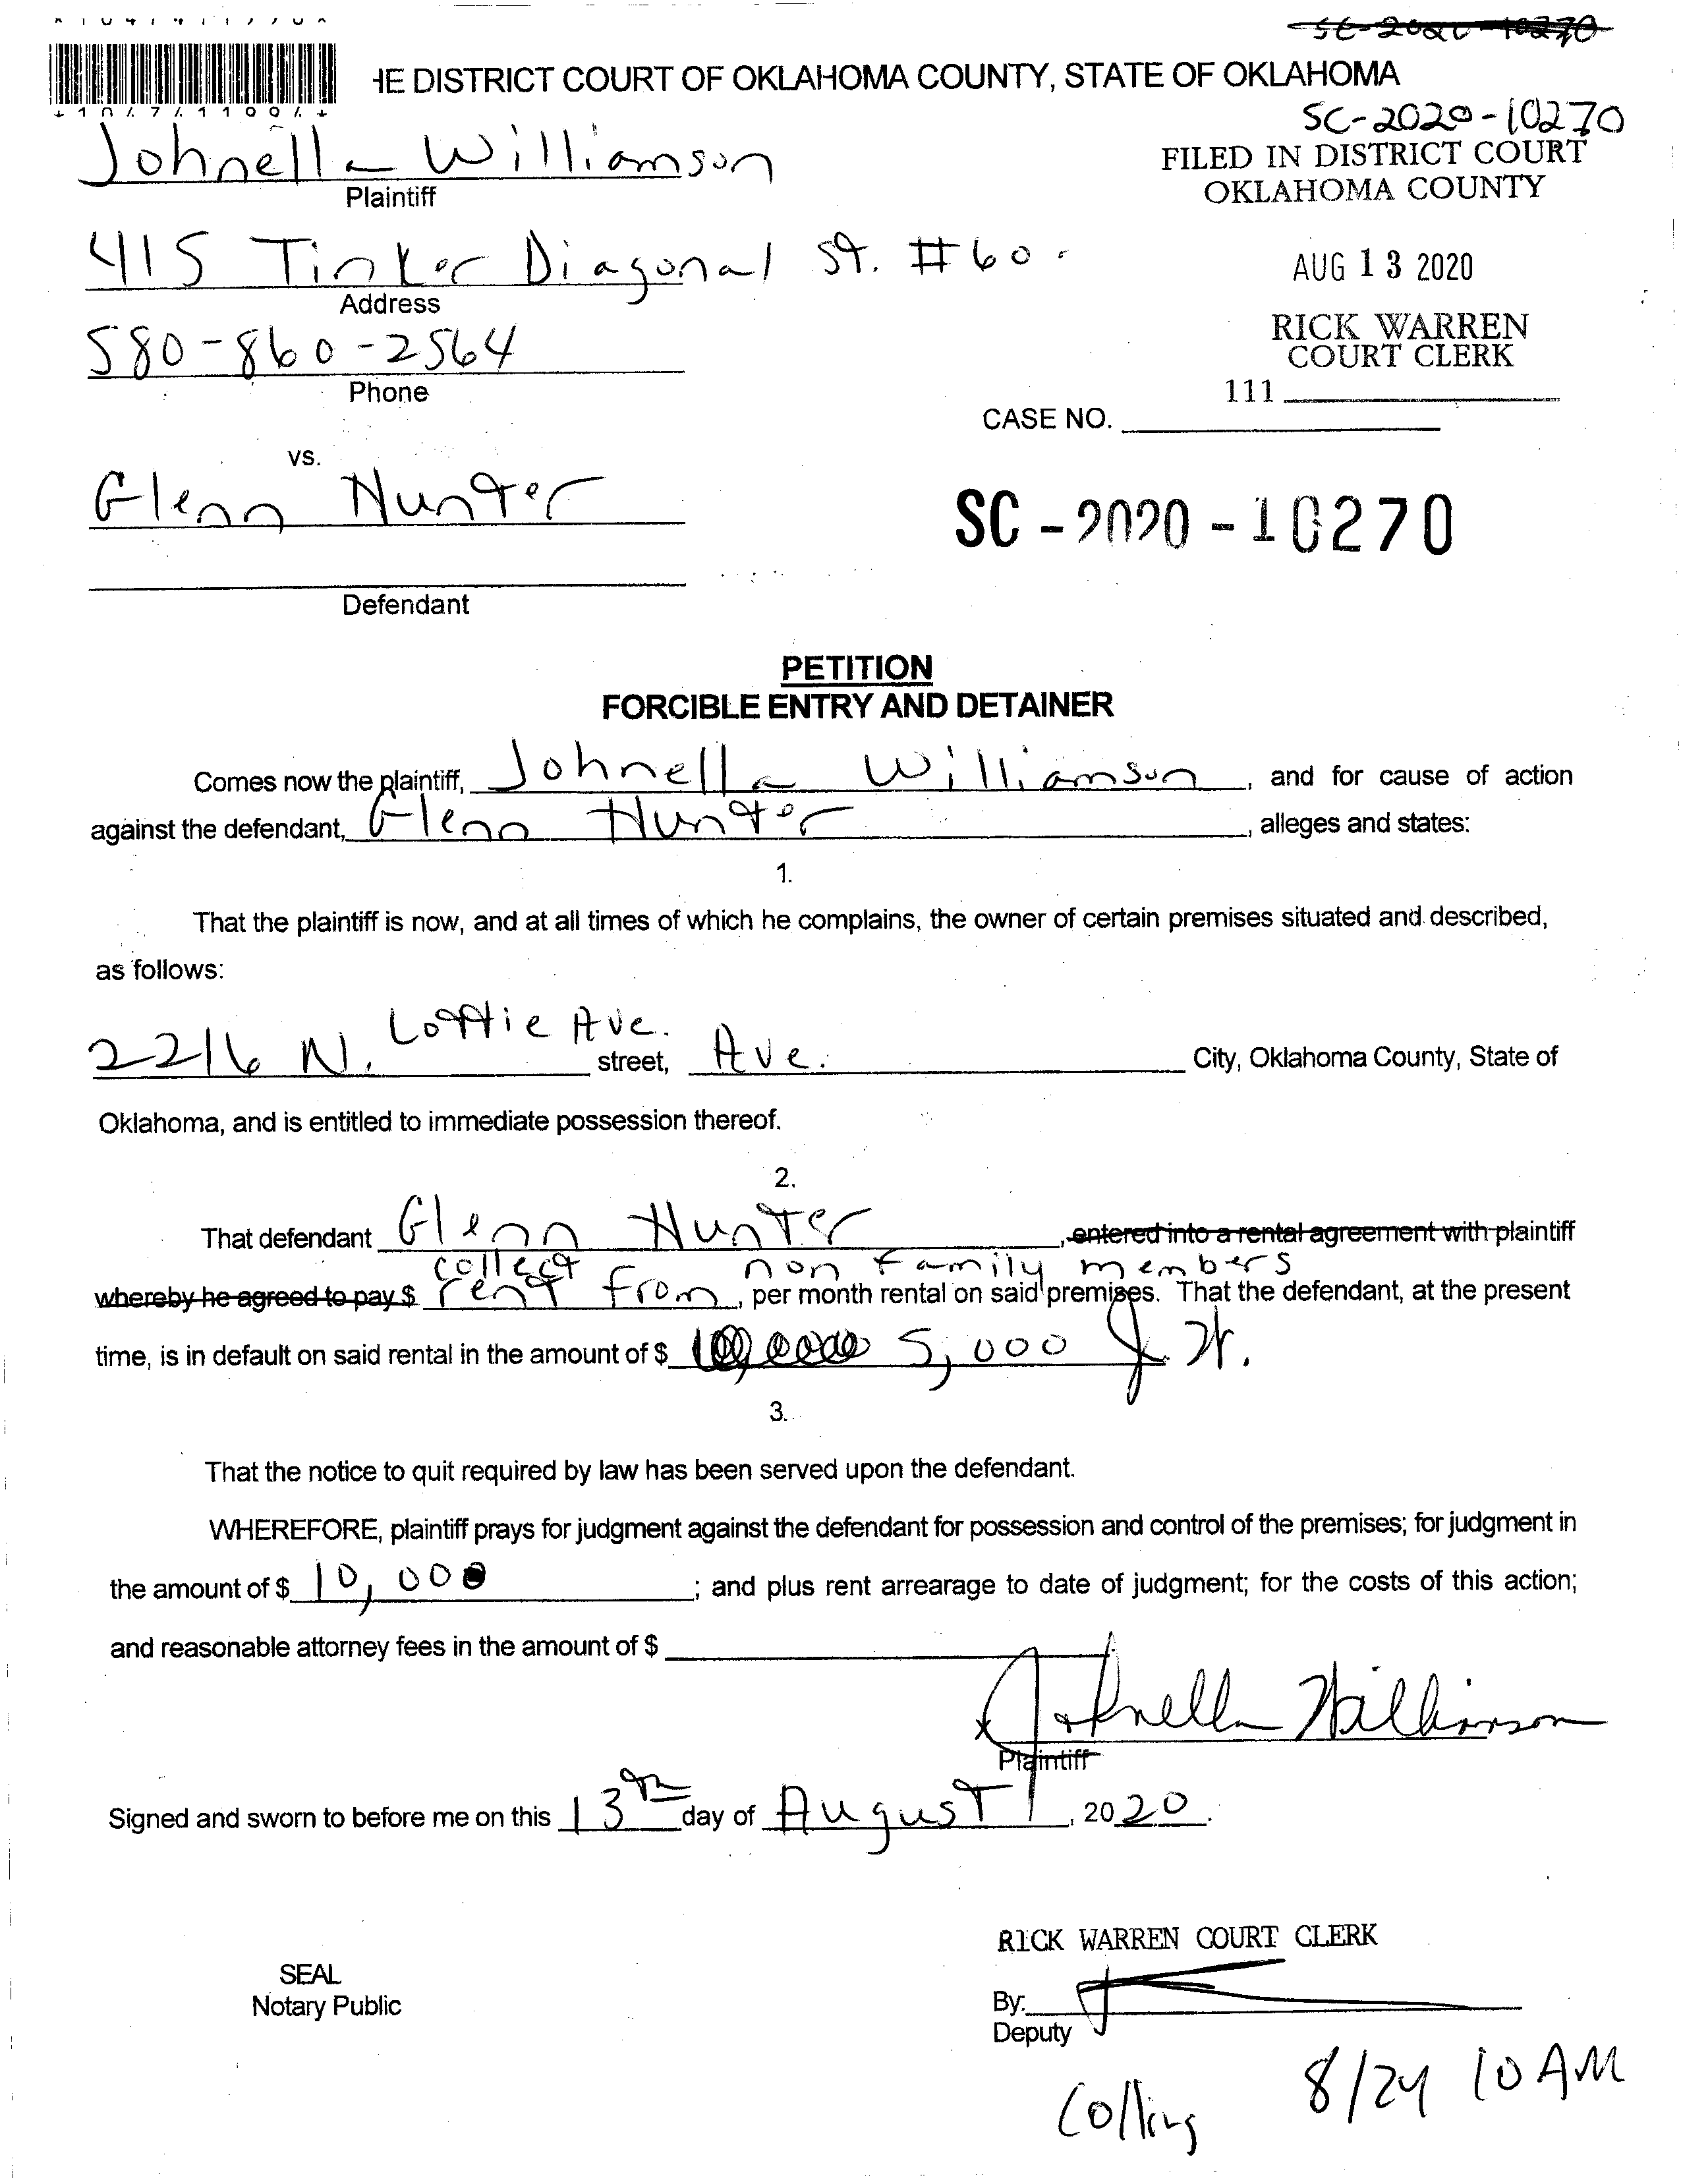 SC-2020-10270
IE DISTRICT COURT OF OKLAHOMA COUNTY, STATE OF OKLAHOMA
SC-2020-10270
Johnella Williamson
Plaintiff
FILED IN DISTRICT COURT
OKLAHOMA COUNTY
415 Tinker Diagonal St. #60
Address
AUG 13 2020
580-860-2564
Phone
RICK WARREN
COURT CLERK
111
CASE NO.
vs.
Glenn Hunter
SC-2020-10270
Defendant
PETITION
FORCIBLE ENTRY AND DETAINER
Comes now the plaintiff, Johnella Williamson, and for cause of action
against the defendant, Glenn Hunter, alleges and states:
1.
That the plaintiff is now, and at all times of which he complains, the owner of certain premises situated and described,
as follows:
2216 N. Lottie Ave. street, Ave. City, Oklahoma County, State of
Oklahoma, and is entitled to immediate possession thereof.
2.
That defendant Glenn Hunter, entered into a rental agreement with plaintiff
collect non family members
whereby he agreed to pay $ rent from, per month rental on said premises. That the defendant, at the present
time, is in default on said rental in the amount of $ 5,000 J.W.
3.
That the notice to quit required by law has been served upon the defendant.
WHEREFORE, plaintiff prays for judgment against the defendant for possession and control of the premises; for judgment in
the amount of $ 10,000; and plus rent arrearage to date of judgment; for the costs of this action;
and reasonable attorney fees in the amount of $
x Johnella Williamson
Plaintiff
Signed and sworn to before me on this 13th day of August, 2020.
RICK WARREN COURT CLERK
SEAL
Notary Public
By:
Deputy
Collins 8/24 10 AM